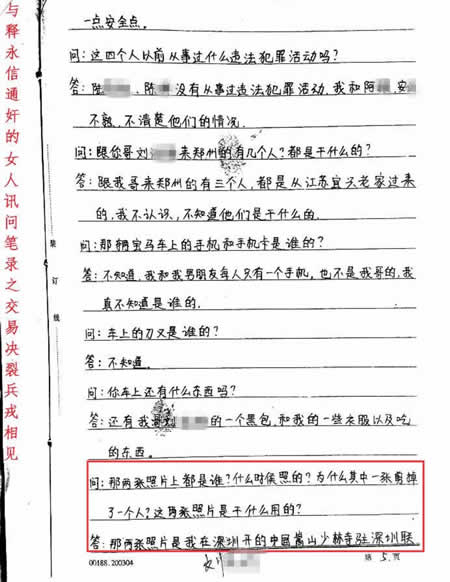 与释永信通奸的女人讯问笔录之交易决裂兵戎相见
装订线
一点安全点.
问:这四个人以前从事过什么违法犯罪活动吗?
答:陈、陈没有从事过违法犯罪活动.我和阿、安
不熟、不清楚他们的情况.
问:跟你哥刘来郑州的有几个人?都是干什么的?
答:跟我哥来郑州的有三个人,都是从江苏宜兴老家过来
的,我不认识、不知道他们是干什么的.
问:那辆宝马车上的手机和手机卡是谁的?
答:不知道,我和我男朋友每人只有一个手机,也不是我哥的,我
真不知道是谁的.
问:车上的刀又是谁的?
答:不知道.
问:你车上还有什么东西吗?
答:还有我哥刘的一个黑包,和我的一些衣服以及吃
的东西.
问:那两张照片上都是谁?什么时候照的?为什么其中一张剪掉
了一个人?这两张照片是干什么用的?
答:那两张照片是我在深圳开的中国嵩山少林寺驻深圳联
00188.200304
第5.页